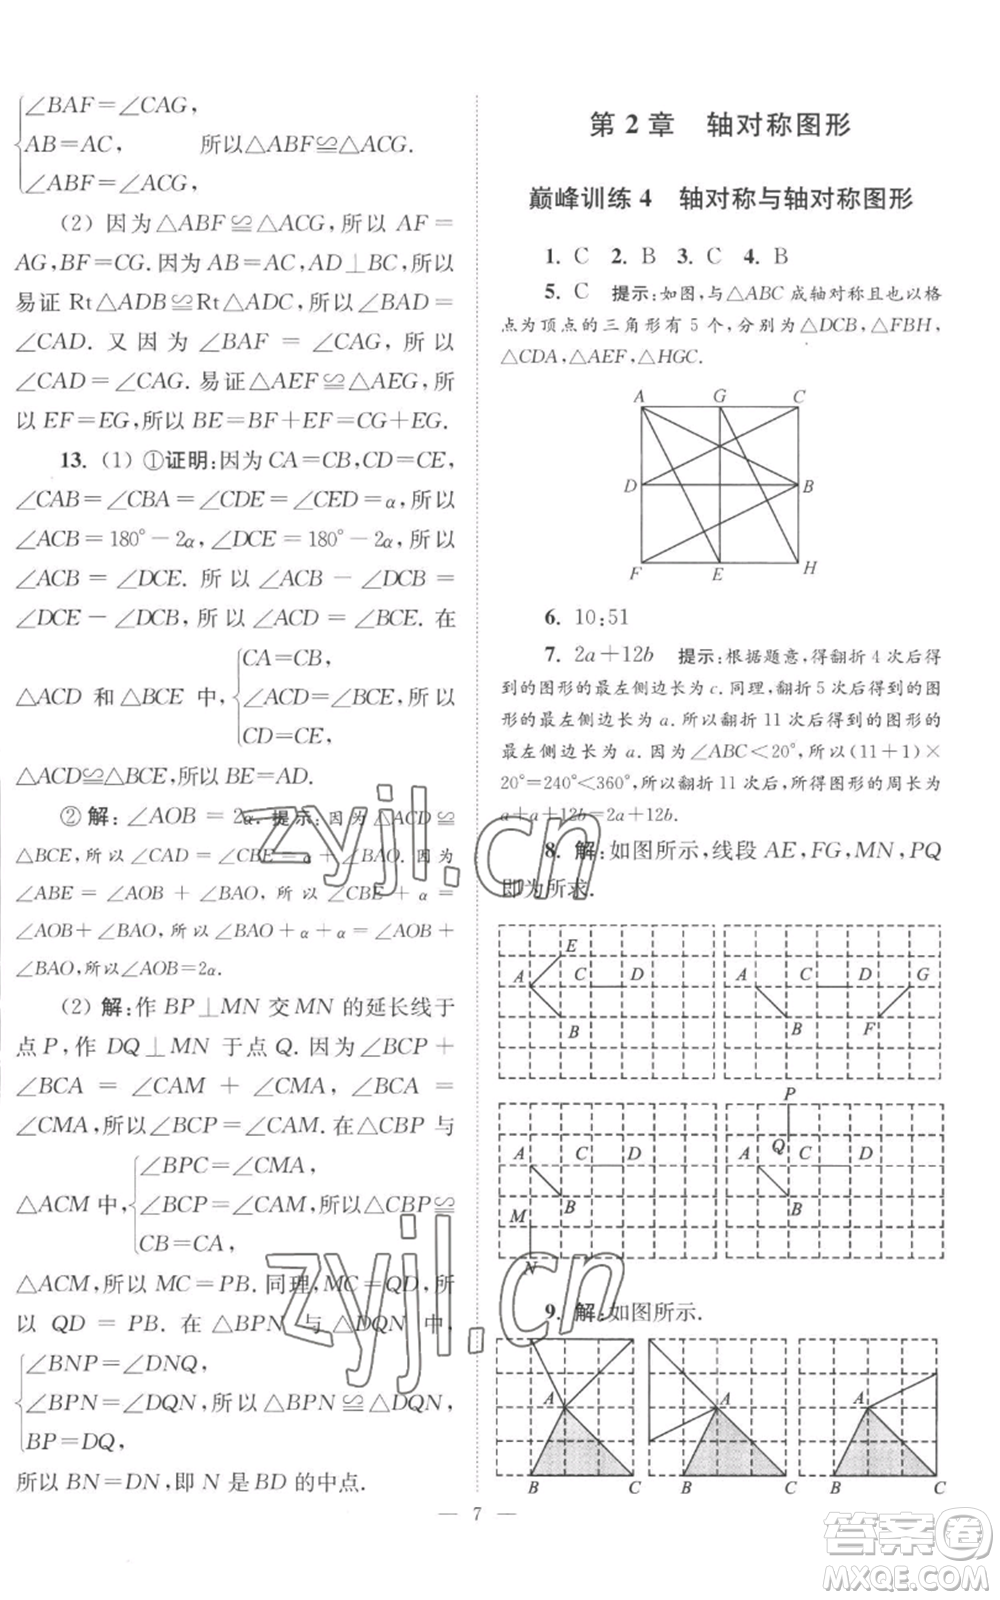 ∠BAF=∠CAG,
AB=AC, 所以△ABF≌△ACG.
∠ABF=∠ACG,
(2) 因为△ABF≌△ACG,所以 AF=
AG,BF=CG.因为AB=AC,AD⊥BC,所以
易证 Rt△ADB≌Rt△ADC,所以∠BAD=
∠CAD. 又因为∠BAF=∠CAG,所以
∠CAD=∠CAG.易证△AEF≌△AEG,所
以 EF=EG,所以 BE=BF+EF=CG+EG.
13. (1) ①证明:因为CA=CB,CD=CE,
∠CAB=∠CBA=∠CDE=∠CED=α,所以
∠ACB=180°-2α,∠DCE=180°-2α,所以
∠ACB=∠DCE. 所以∠ACB-∠DCB=
∠DCE-∠DCB, 所以∠ACD=∠BCE. 在
CA=CB,
△ACD 和△BCE 中, ∠ACD=∠BCE,所以
CD=CE,
△ACD≌△BCE,所以BE=AD.
② 解:∠AOB=2α. 提示:因为△ACD≌
△BCE,所以∠CAD=∠CBE=α+∠BAO.因为
∠ABE=∠AOB+∠BAO,所以∠CBE+α=
∠AOB+∠BAO,所以∠BAO+α+α=∠AOB+
∠BAO,所以∠AOB=2α.
(2) 解:作 BP⊥MN 交 MN 的延长线于
点P,作 DQ⊥MN 于点Q. 因为∠BCP+
∠BCA=∠CAM+∠CMA,∠BCA=
∠CMA,所以∠BCP=∠CAM.在△CBP 与
∠BPC=∠CMA,
△ACM 中, ∠BCP=∠CAM,所以△CBP≌
CB=CA,
△ACM,所以 MC=PB.同理,MC=QD,所
以 QD=PB. 在△BPN 与△DQN 中,
∠BNP=∠DNQ,
∠BPN=∠DQN,所以△BPN≌△DQN,
BP=DQ,
所以 BN=DN,即 N 是 BD 的中点.
第 2 章 轴对称图形
巅峰训练 4 轴对称与轴对称图形
1. C 2. B 3. C 4. B
5. C 提示:如图,与△ABC 成轴对称且也以格
点为顶点的三角形有 5 个,分别为△DCB,△FBH,
△CDA,△AEF,△HGC.
A G C
D B
F E H
6. 10:51
7. 2a+12b 提示:根据题意,得翻折 4 次后得
到的图形的最左侧边长为 c.同理,翻折 5 次后得到的图
形的最左侧边长为 a.所以翻折 11 次后得到的图形的
最左侧边长为 a.因为∠ABC<20°,所以(11+1)×
20°=240°<360°,所以翻折 11 次后,所得图形的周长为
a+a+12b=2a+12b.
8. 解:如图所示,线段 AE,FG,MN,PQ
即为所求.
E
A C D
B
A C D G
B F
A C D
B
M
N
P
Q
A C D
B
9. 解:如图所示.
A
B C
A
B C
A
B C
— 7 —
zyjl.cn
zyjl.cn
答案圈
MXQE.COM